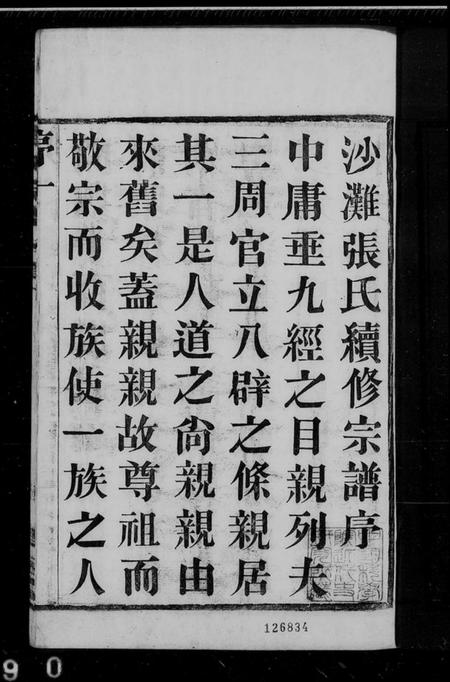 沙灘張氏續修宗譜序
中庸垂九經之目親列夫
三周官立八辟之條親居
其一是人道之尚親親由
來舊矣蓋親親故尊祖而
敬宗而收族使一族之人
序一
126834
90